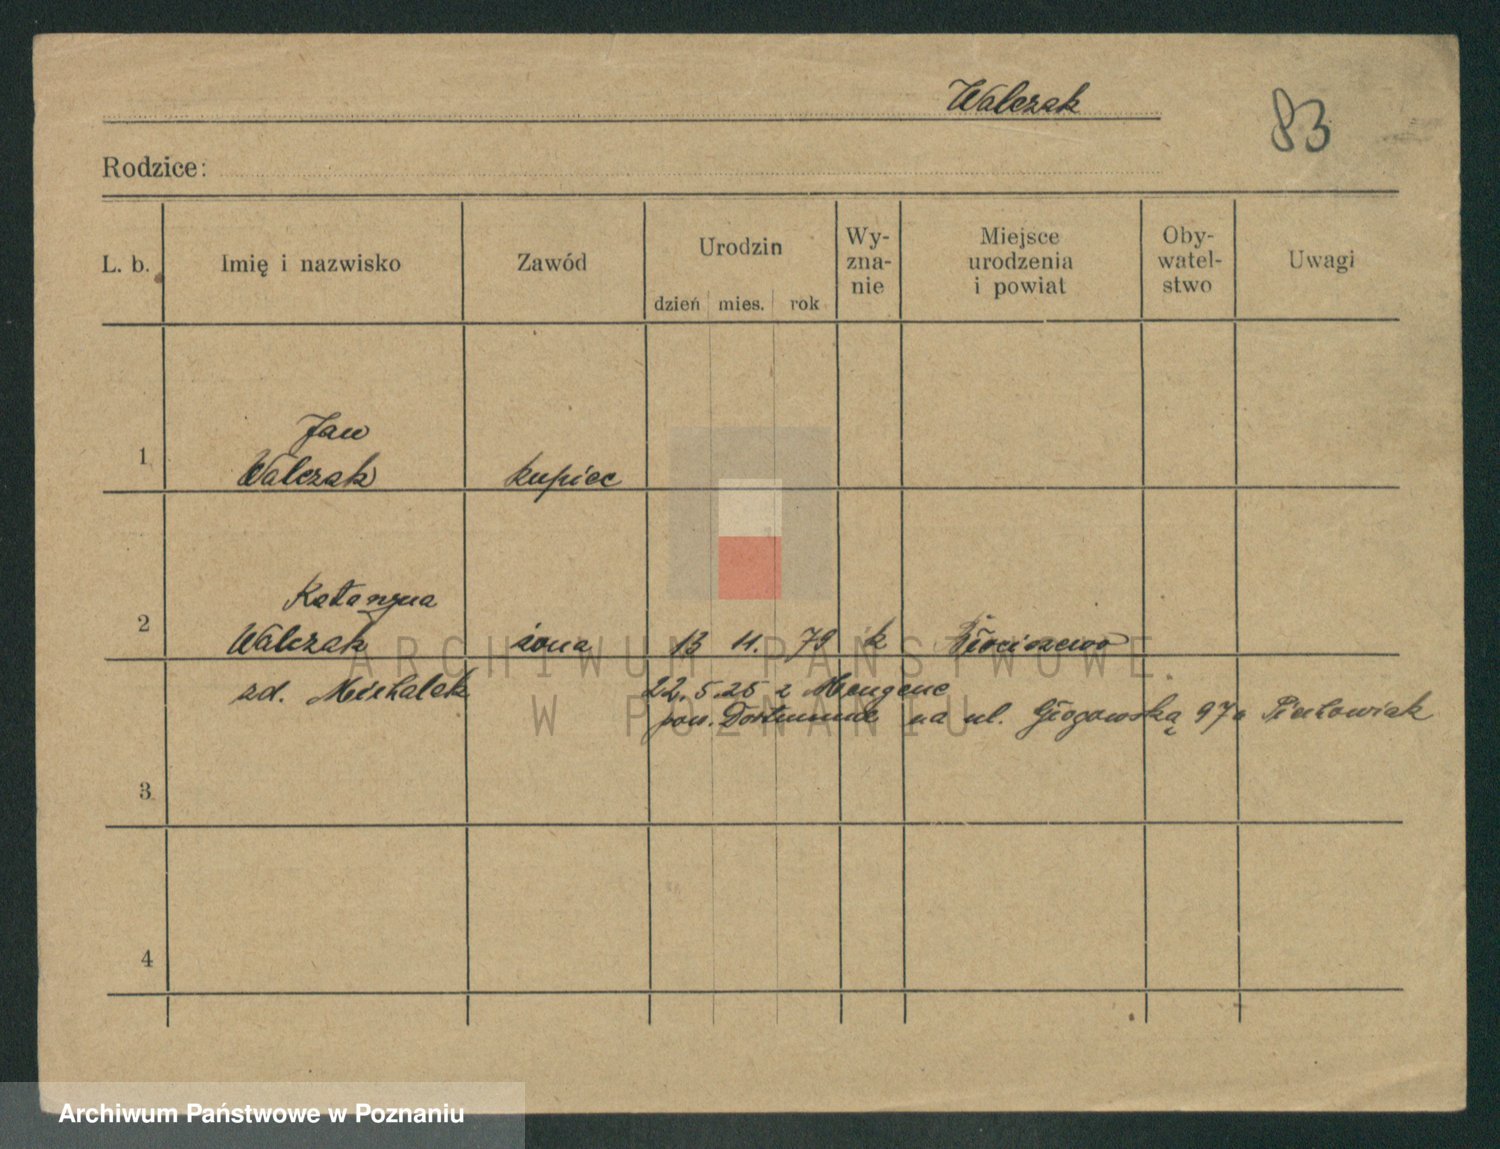 Walczak
83
Rodzice:
L. b.
Imię i nazwisko
Zawód
Urodzin
dzień mies. rok
Wy-
zna-
nie
Miejsce
urodzenia
i powiat
Oby-
watel-
stwo
Uwagi
1
Jan
Walczak
kupiec
2
Katarzyna
Walczak
żona
13 11. 79
k
Włościszewo
zd. Michalak
22.5.25 z Mengene
pow. Dortmund na ul. Głogowską 97a
3
4
ARCHIWUM PAŃSTWOWE
W POZNANIU
Archiwum Państwowe w Poznaniu